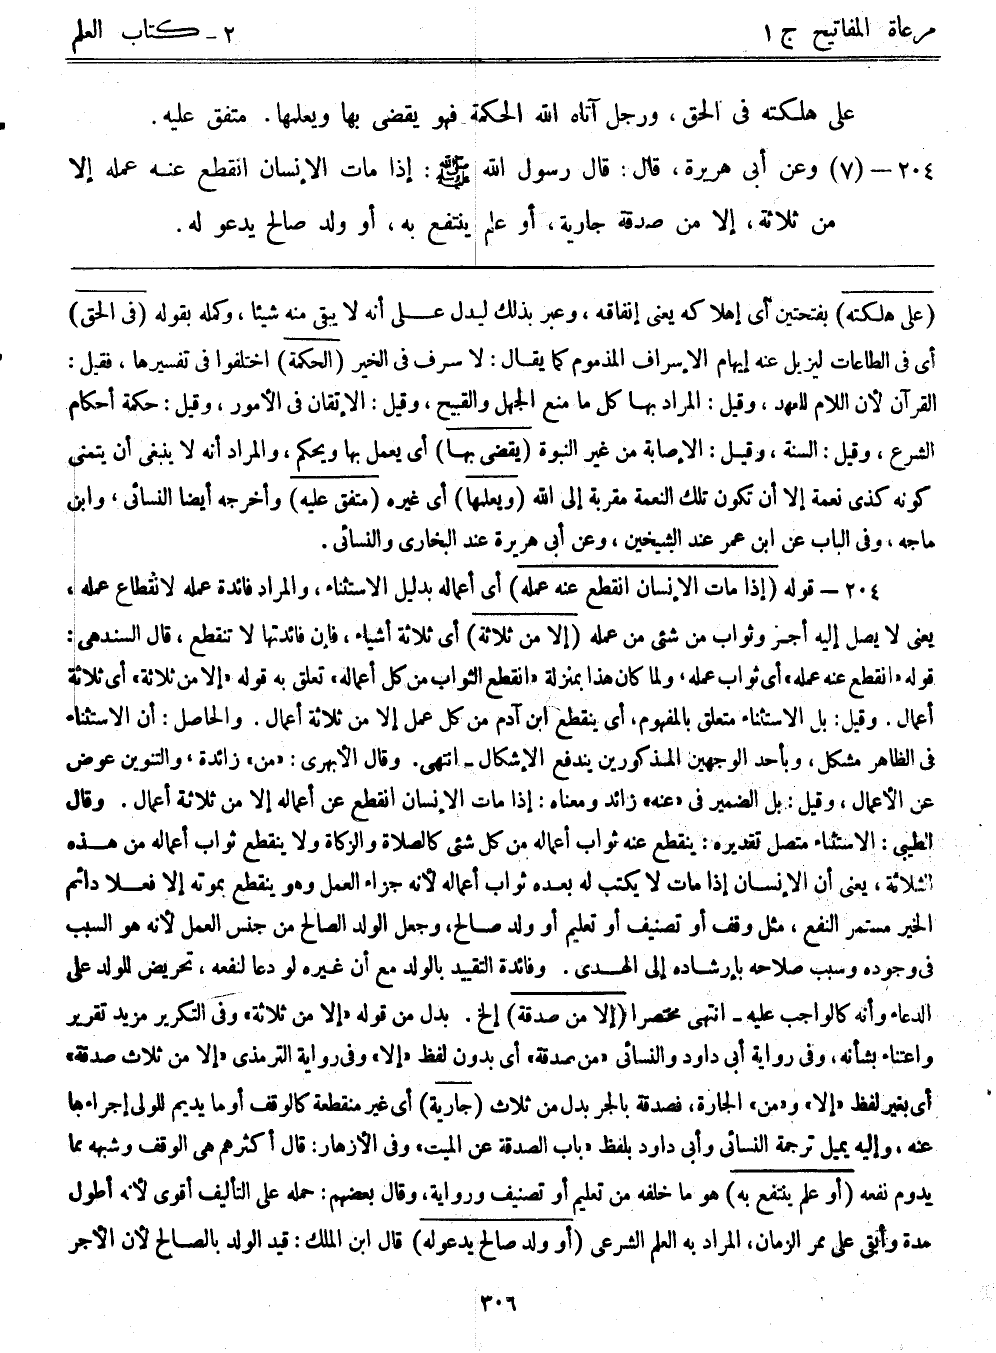 مرعاة المفاتيح ج ١
٢ - كتاب العلم
على هلكته فى الحق، ورجل آتاه الله الحكمة فهو يقضى بها ويعلمها. متفق عليه.
٢٠٤ - (٧) وعن أبى هريرة، قال: قال رسول الله ﷺ: إذا مات الإنسان انقطع عنه عمله إلا
من ثلاثة، إلا من صدقة جارية، أو علم ينتفع به، أو ولد صالح يدعو له.
(على هلكته) بفتحتين أى إهلاكه يعنى إنفاقه، وعبر بذلك ليدل على أنه لا يبقى منه شيئا، وكمله بقوله (فى الحق)
أى فى الطاعات ليزيل عنه إيهام الإسراف المذموم كما يقال: لا سرف فى الخير (الحكمة) اختلفوا فى تفسيرها، فقيل:
القرآن لأن اللام للعهد، وقيل: المراد بها كل ما منع الجهل والقبيح، وقيل: الإتقان فى الأمور، وقيل: حكمة أحكام
الشرع، وقيل: السنة، وقيل: الإصابة من غير النبوة (يقضى بها) أى يعمل بها ويحكم، والمراد أنه لا ينبغى أن يتمنى
كونه كذى نعمة إلا أن تكون تلك النعمة مقربة إلى الله (ويعلمها) أى غيره (متفق عليه) وأخرجه أيضا النسائى، وابن
ماجه، وفى الباب عن ابن عمر عند الشيخين، وعن أبى هريرة عند البخارى والنسائى.
٢٠٤ - قوله (إذا مات الإنسان انقطع عنه عمله) أى أعماله بدليل الاستثناء، والمراد فائدة عمله لانقطاع عمله،
يعنى لا يصل إليه أجر وثواب من شئى من عمله (إلا من ثلاثة) أى ثلاثة أشياء، فإن فائدتها لا تنقطع، قال السندهى:
قوله «انقطع عنه عمله» أى ثواب عمله، ولما كان هذا بمنزلة «انقطع الثواب من كل أعماله» تعلق به قوله «إلا من ثلاثة» أى ثلاثة
أعمال. وقيل: بل الاستثناء متعلق بالمفهوم، أى ينقطع ابن آدم من كل عمل إلا من ثلاثة أعمال. والحاصل: أن الاستثناء
فى الظاهر مشكل، وبأحد الوجهين المذكورين يندفع الإشكال - انتهى. وقال الأبهرى: «من» زائدة، والتنوين عوض
عن الأعمال، وقيل: بل الضمير فى «عنه» زائد ومعناه: إذا مات الإنسان انقطع عن أعماله إلا من ثلاثة أعمال. وقال
الطيبى: الاستثناء متصل تقديره: ينقطع عنه ثواب أعماله من كل شئى كالصلاة والزكاة ولا ينقطع ثواب أعماله من هذه
الثلاثة، يعنى أن الإنسان إذا مات لا يكتب له بعده ثواب أعماله لأنه جزاء العمل وهو ينقطع بموته إلا فعلا دائم
الخير مستمر النفع، مثل وقف أو تصنيف أو تعليم أو ولد صالح، وجعل الولد الصالح من جنس العمل لأنه هو السبب
فى وجوده وسبب صلاحه بإرشاده إلى الهدى. وفائدة التقييد بالولد مع أن غيره لو دعا لنفعه، تحريض للولد على
الدعاء وأنه كالواجب عليه - انتهى مختصرا (إلا من صدقة) إلخ. بدل من قوله «إلا من ثلاثة» وفى التكرير مزيد تقرير
واعتناء بشأنه، وفى رواية أبى داود والنسائى «من صدقة» أى بدون لفظ «إلا» وفى رواية الترمذى «إلا من ثلاث صدقة»
أى بغير لفظ «إلا» و«من» الجارة، فصدقة بالجر بدل من ثلاث (جارية) أى غير منقطعة كالوقف أو ما يديم للولى إجراءها
عنه، وإليه يميل ترجمة النسائى وأبى داود بلفظ «باب الصدقة عن الميت» وفى الأزهار: قال أكثرهم هى الوقف وشبهه مما
يدوم نفعه (أو علم ينتفع به) هو ما خلفه من تعليم أو تصنيف ورواية، وقال بعضهم: حمله على التأليف أقوى لأنه أطول
مدة وأبقى على ممر الزمان، المراد به العلم الشرعى (أو ولد صالح يدعو له) قال ابن الملك: قيد الولد بالصالح لأن الأجر
٣٠٦